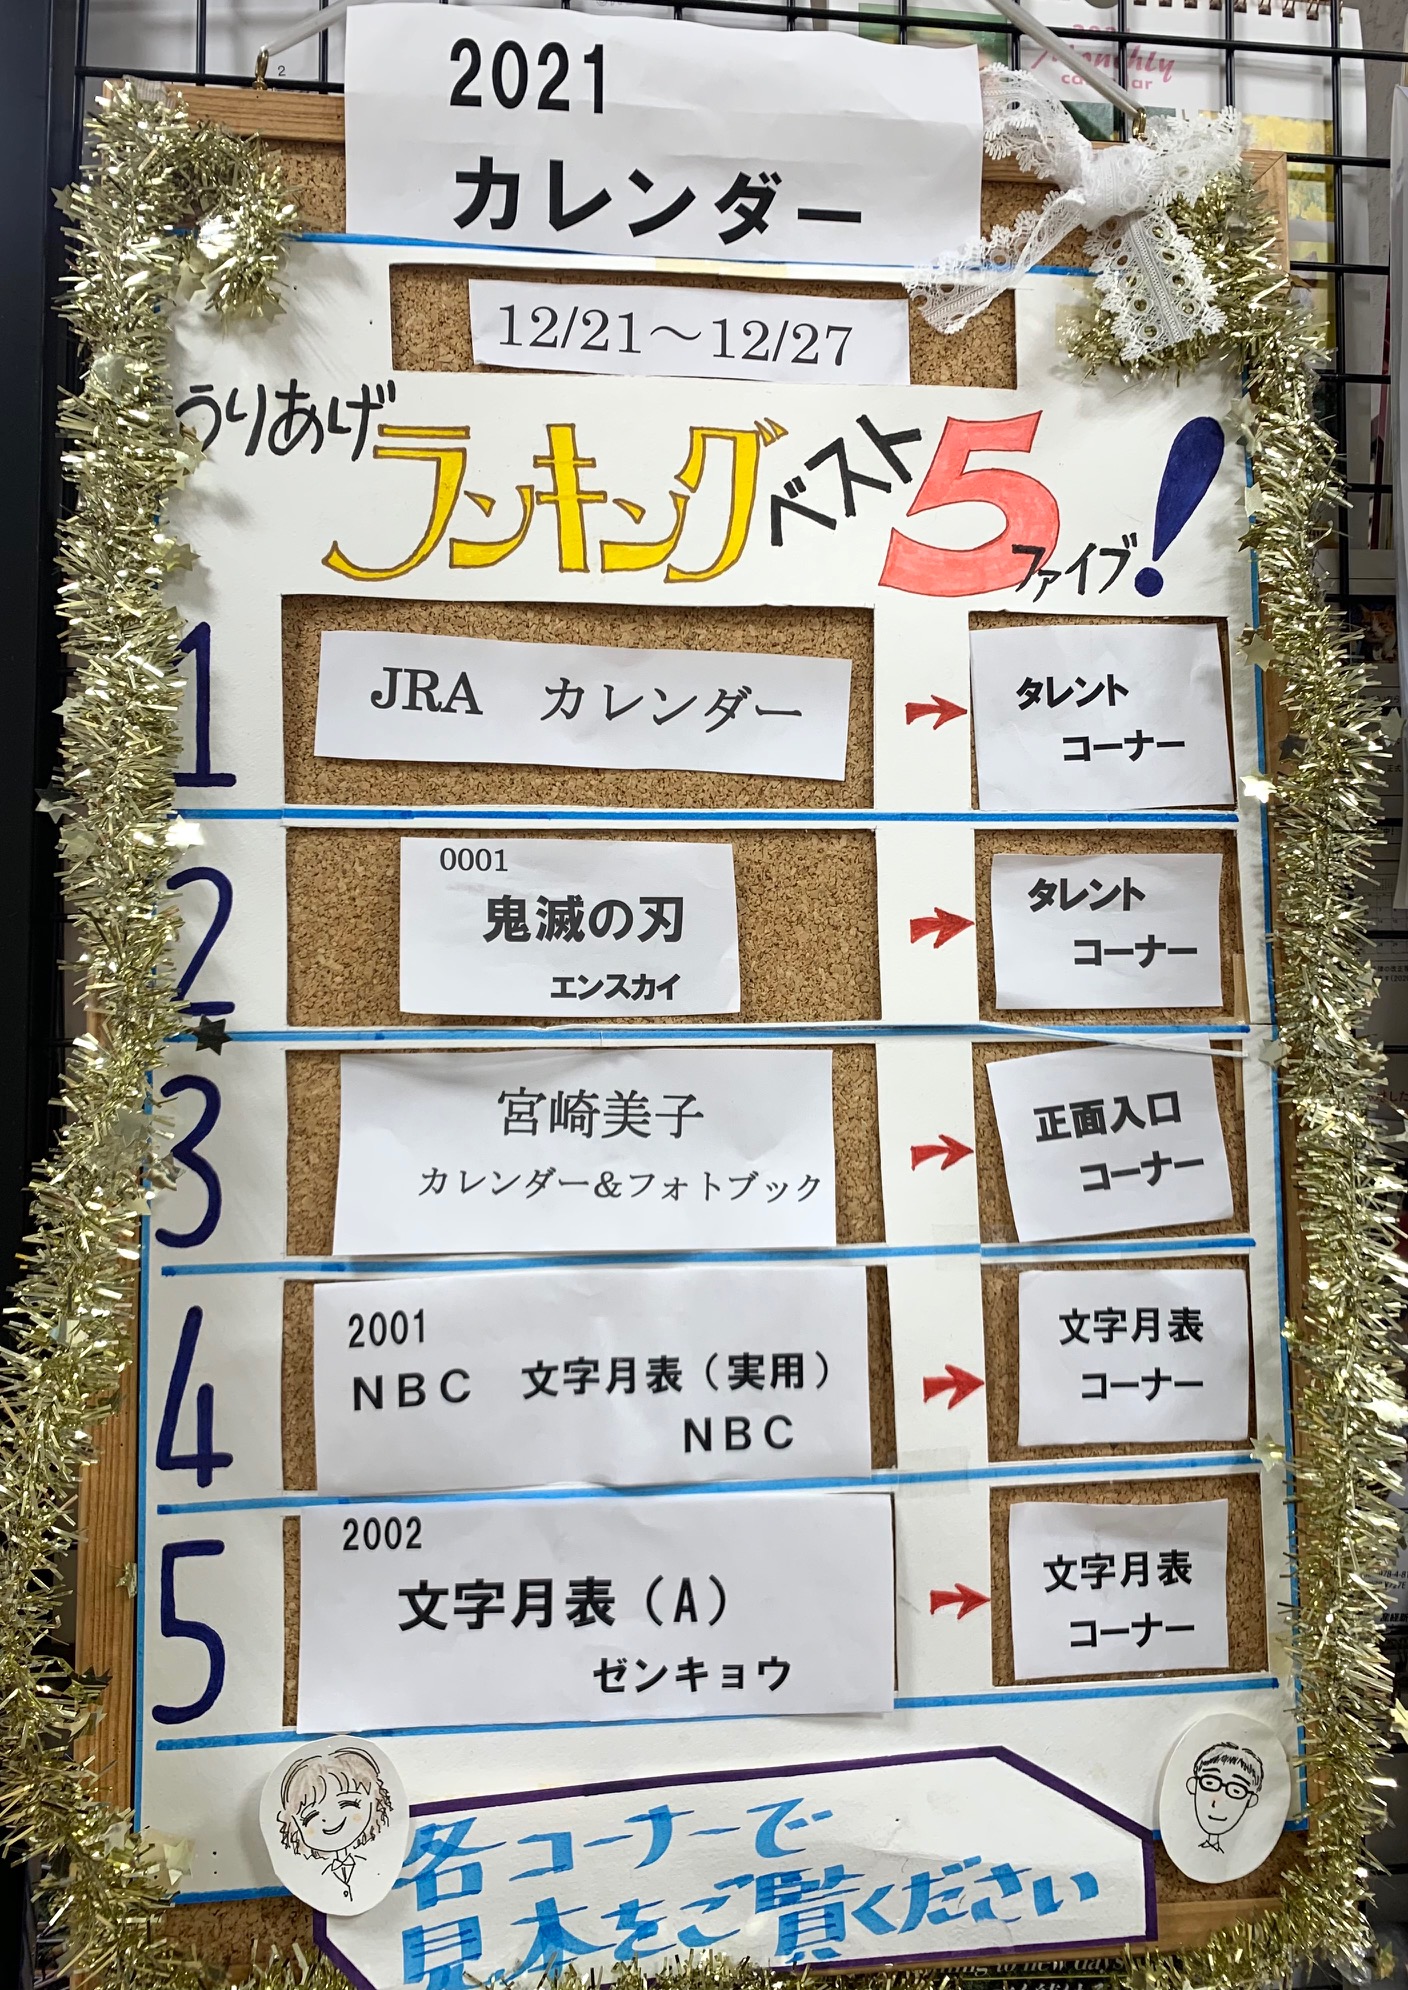 2021
カレンダー
12/21～12/27
うりあげ
ランキング
ベスト
5
ファイブ!
1
JRA カレンダー
タレント
コーナー
2
0001
鬼滅の刃
エンスカイ
タレント
コーナー
3
宮崎美子
カレンダー&フォトブック
正面入口
コーナー
4
2001
NBC 文字月表(実用)
NBC
文字月表
コーナー
5
2002
文字月表(A)
ゼンキョウ
文字月表
コーナー
各コーナーで
見本をご覧ください
Monthly